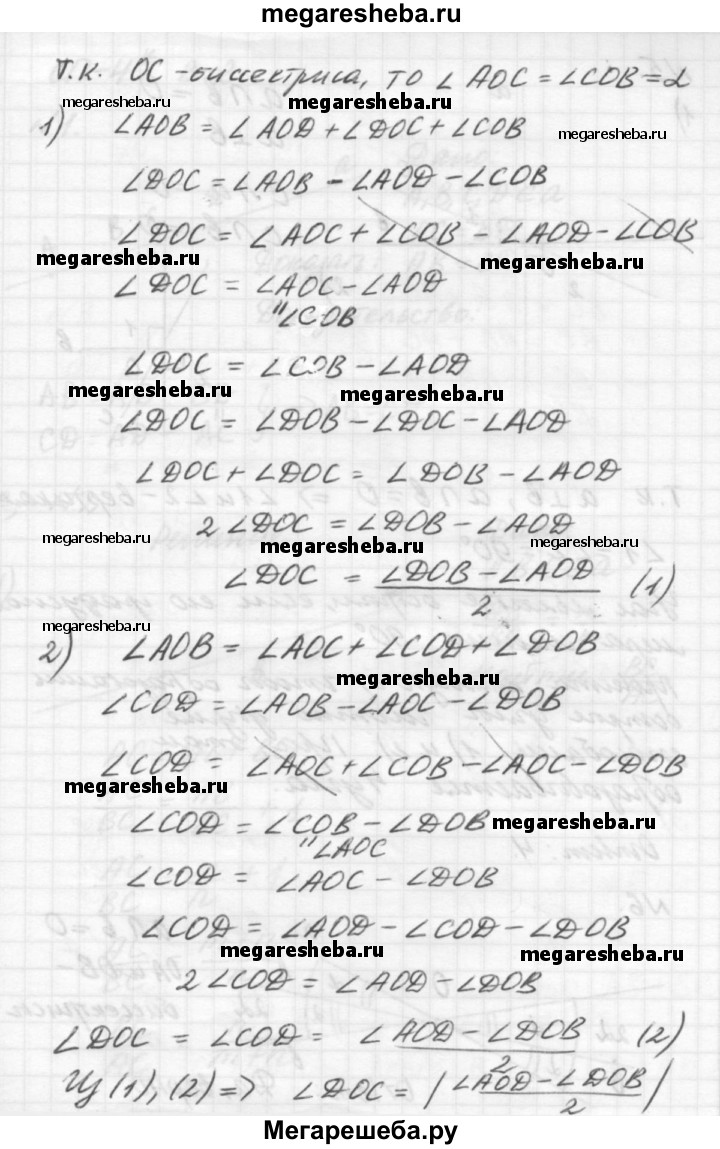 megaresheba.ru
Т.к. ОС - биссектриса, то ∠AOC = ∠COB = α
megaresheba.ru megaresheba.ru
1) ∠AOB = ∠AOD + ∠DOC + ∠COB
megaresheba.ru
∠DOC = ∠AOB - ∠AOD - ∠COB
∠DOC = ∠AOC + ∠COB - ∠AOD - ∠COB
megaresheba.ru megaresheba.ru
∠DOC = ∠AOC - ∠AOD
"∠COB
∠DOC = ∠COB - ∠AOD
megaresheba.ru megaresheba.ru
∠DOC = ∠DOB - ∠DOC - ∠AOD
∠DOC + ∠DOC = ∠DOB - ∠AOD
2∠DOC = ∠DOB - ∠AOD
megaresheba.ru megaresheba.ru megaresheba.ru
∠DOC = (∠DOB - ∠AOD)/2 (1)
megaresheba.ru
2) ∠AOB = ∠AOC + ∠COD + ∠DOB
megaresheba.ru
∠COD = ∠AOB - ∠AOC - ∠DOB
∠COD = ∠AOC + ∠COB - ∠AOC - ∠DOB
megaresheba.ru megaresheba.ru
∠COD = ∠COB - ∠DOB
megaresheba.ru
"∠AOC
∠COD = ∠AOC - ∠DOB
∠COD = ∠AOD - ∠COD - ∠DOB
megaresheba.ru megaresheba.ru
2∠COD = ∠AOD - ∠DOB
∠DOC = ∠COD = (∠AOD - ∠DOB)/2 (2)
Из (1), (2) => ∠DOC = |(∠AOD - ∠DOB)/2|
Мегарешеба.ру